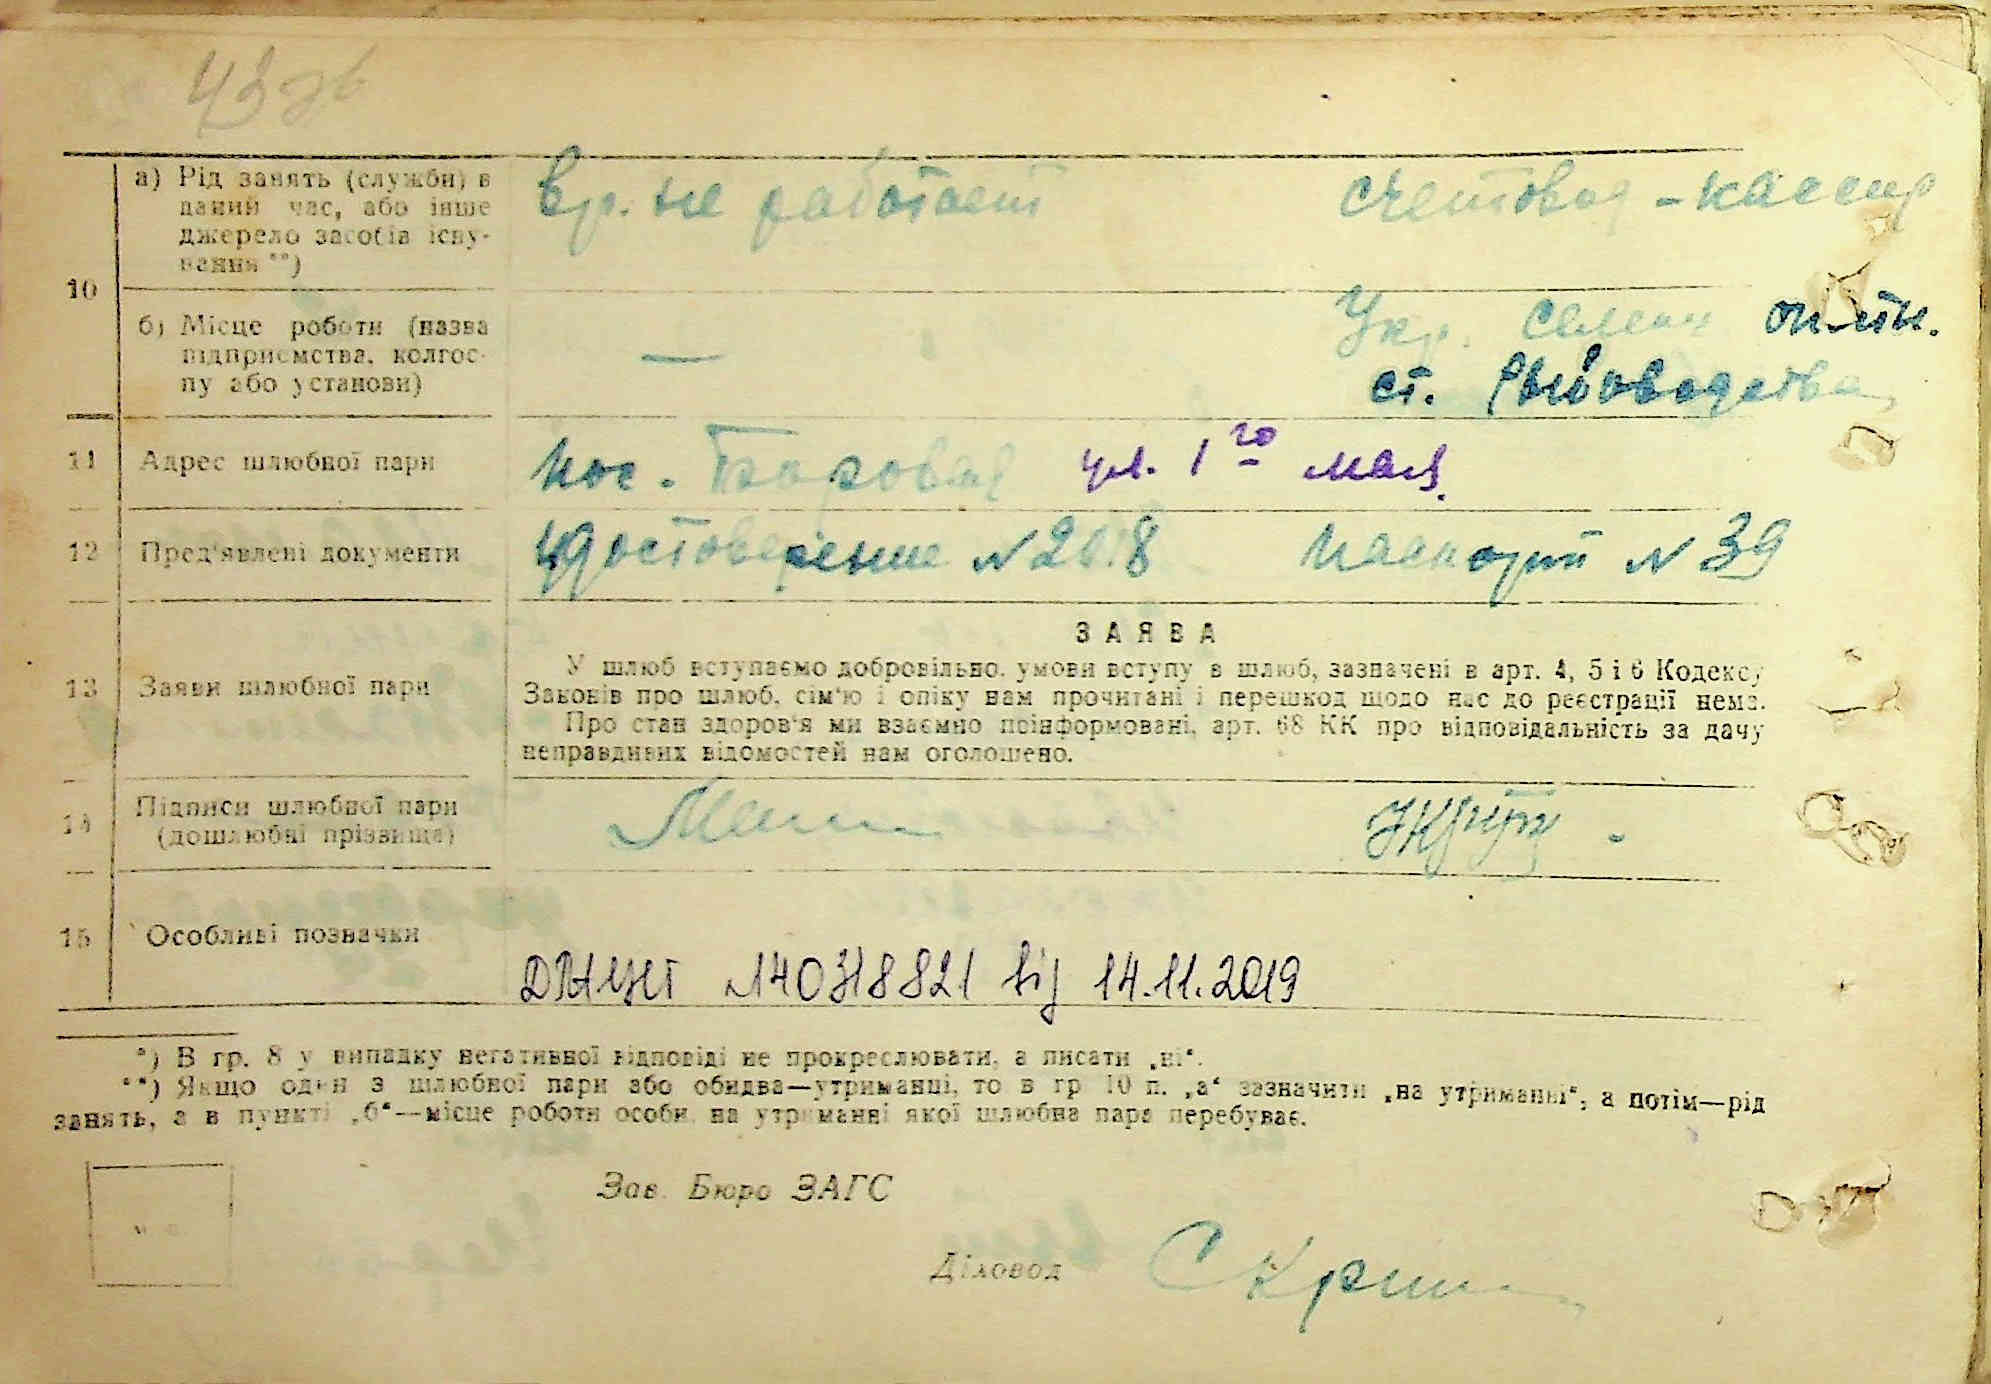 43 зв
а) Рід занять (служби) в
даний час, або інше
джерело засобів існу-
вання **)
вр. не работает
счетовод - кассир
10
б) Місце роботи (назва
підприємства, колгос-
пу або установи)
—
Укр. оп. стн.
ст. Рыбоводства
11 Адрес шлюбної пари
пос. Боровая ул. 1го мая.
12 Пред'явлені документи
Удостоверение N 2018 Паспорт N 39
ЗАЯВА
13 Заяви шлюбної пари
У шлюб вступаємо добровільно, умови вступу в шлюб, зазначені в арт. 4, 5 і 6 Кодексу
Законів про шлюб, сім'ю і опіку нам прочитані і перешкод щодо нас до реєстрації нема.
Про стан здоров'я ми взаємно поінформовані, арт. 68 КК про відповідальність за дачу
неправдивих відомостей нам оголошено.
14 Підписи шлюбної пари
(дошлюбні прізвища)
15 Особливі позначки
ДРАЦСГ N140318821 від 14.11.2019
*) В гр. 8 у випадку негативної відповіді не прокреслювати, а писати „ні“.
**) Якщо один з шлюбної пари або обидва—утриманці, то в гр 10 п. „а“ зазначити „на утриманні“, а потім—рід
занять, а в пункті „б“—місце роботи особи, на утриманні якої шлюбна пара перебуває.
Зав. Бюро ЗАГС
М. П.
Діловод